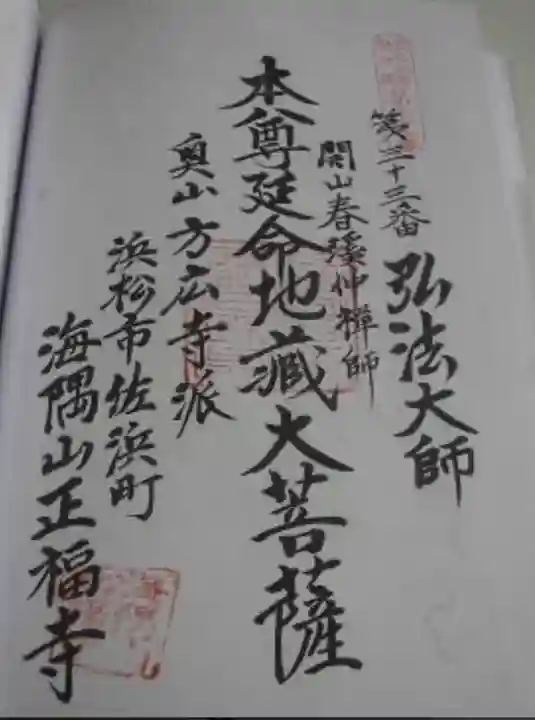 第三十三番 弘法大師
開山春溪仲禅師
本尊延命地蔵大菩薩
奥山方広寺派
浜松市佐浜町
海隅山正福寺